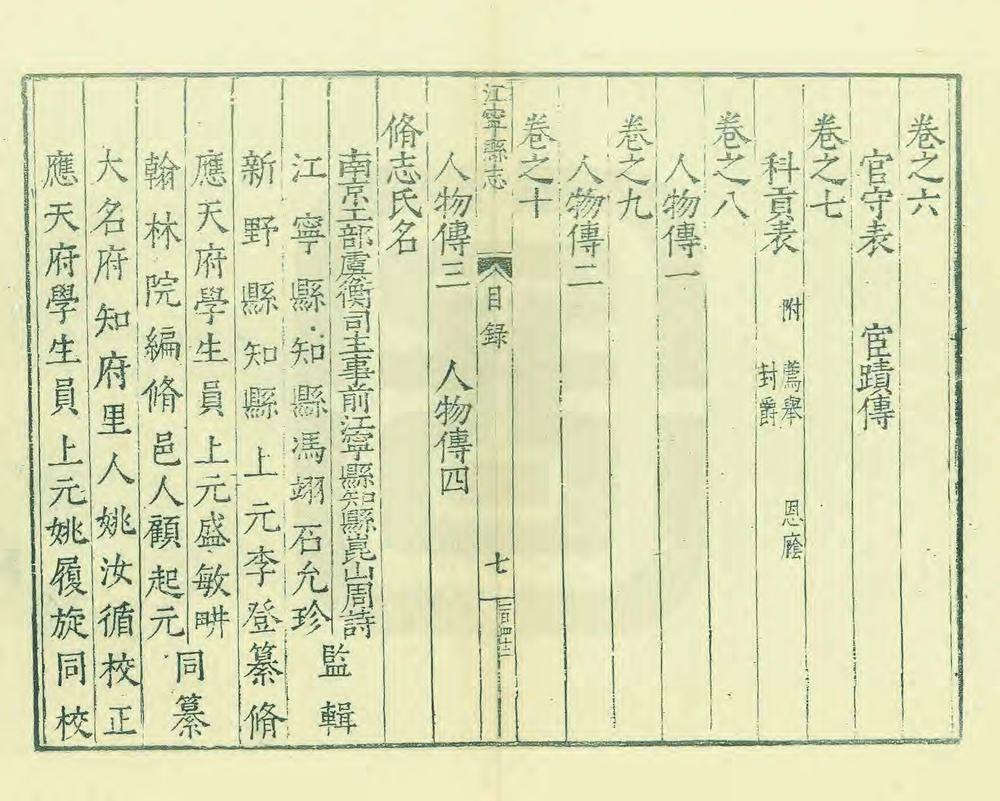 卷之六
官守表　宦蹟傳
卷之七
科貢表　附　薦舉　恩廕
封爵
卷之八
人物傳一
卷之九
人物傳二
卷之十
江寧縣志　目録　七
人物傳三　人物傳四
脩志氏名
南京工部虞衡司主事前江寧縣知縣崑山周詩
江寧縣知縣馮翊石允珍
監輯
新野縣知縣上元李登纂脩
應天府學生員上元盛敏畊
翰林院編脩邑人顧起元
同纂
大名府知府里人姚汝循校正
應天府學生員上元姚履旋同校